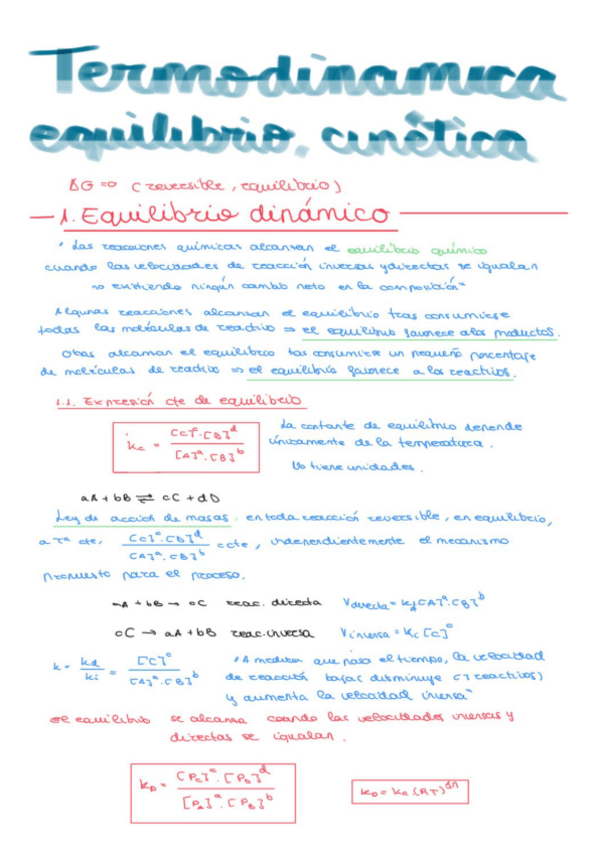 Termodinamica
equilibrio, cinética
ΔG = 0 (reversible, equilibrio)
1. Equilibrio dinámico
"Las reacciones químicas alcanzan el equilibrio químico
cuando las velocidades de reacción inversas y directas se igualan
no existiendo ningún cambio neto en la composición"
Algunas reacciones alcanzan el equilibrio tras consumirse
todas las moléculas de reactivo ⇒ el equilibrio favorece a los productos.
Otras alcanzan el equilibrio tras consumirse un pequeño porcentaje
de moléculas de reactivo ⇒ el equilibrio favorece a los reactivos.
1.1. Expresión cte de equilibrio
Kc = [C]^c · [D]^d / [A]^a · [B]^b
La contante de equilibrio depende
únicamente de la temperatura.
No tiene unidades.
aA + bB ⇌ cC + dD
Ley de acción de masas: en toda reacción reversible, en equilibrio,
a Tª cte, [C]^c · [D]^d / [A]^a · [B]^b = cte, independientemente el mecanismo
propuesto para el proceso.
aA + bB → cC reac. directa Vdirecta = Kd [A]^a · [B]^b
cC → aA + bB reac. inversa Vinversa = Ki [C]^c
K = Kd / Ki = [C]^c / [A]^a · [B]^b
"A medida que pasa el tiempo, la velocidad
de reacción baja (disminuye reactivos)
y aumenta la velocidad inversa"
El equilibrio se alcanza cuando las velocidades inversas y
directas se igualan.
Kp = [Pc]^c · [PD]^d / [Pa]^a · [PB]^b
Kp = Kc (RT)^Δn